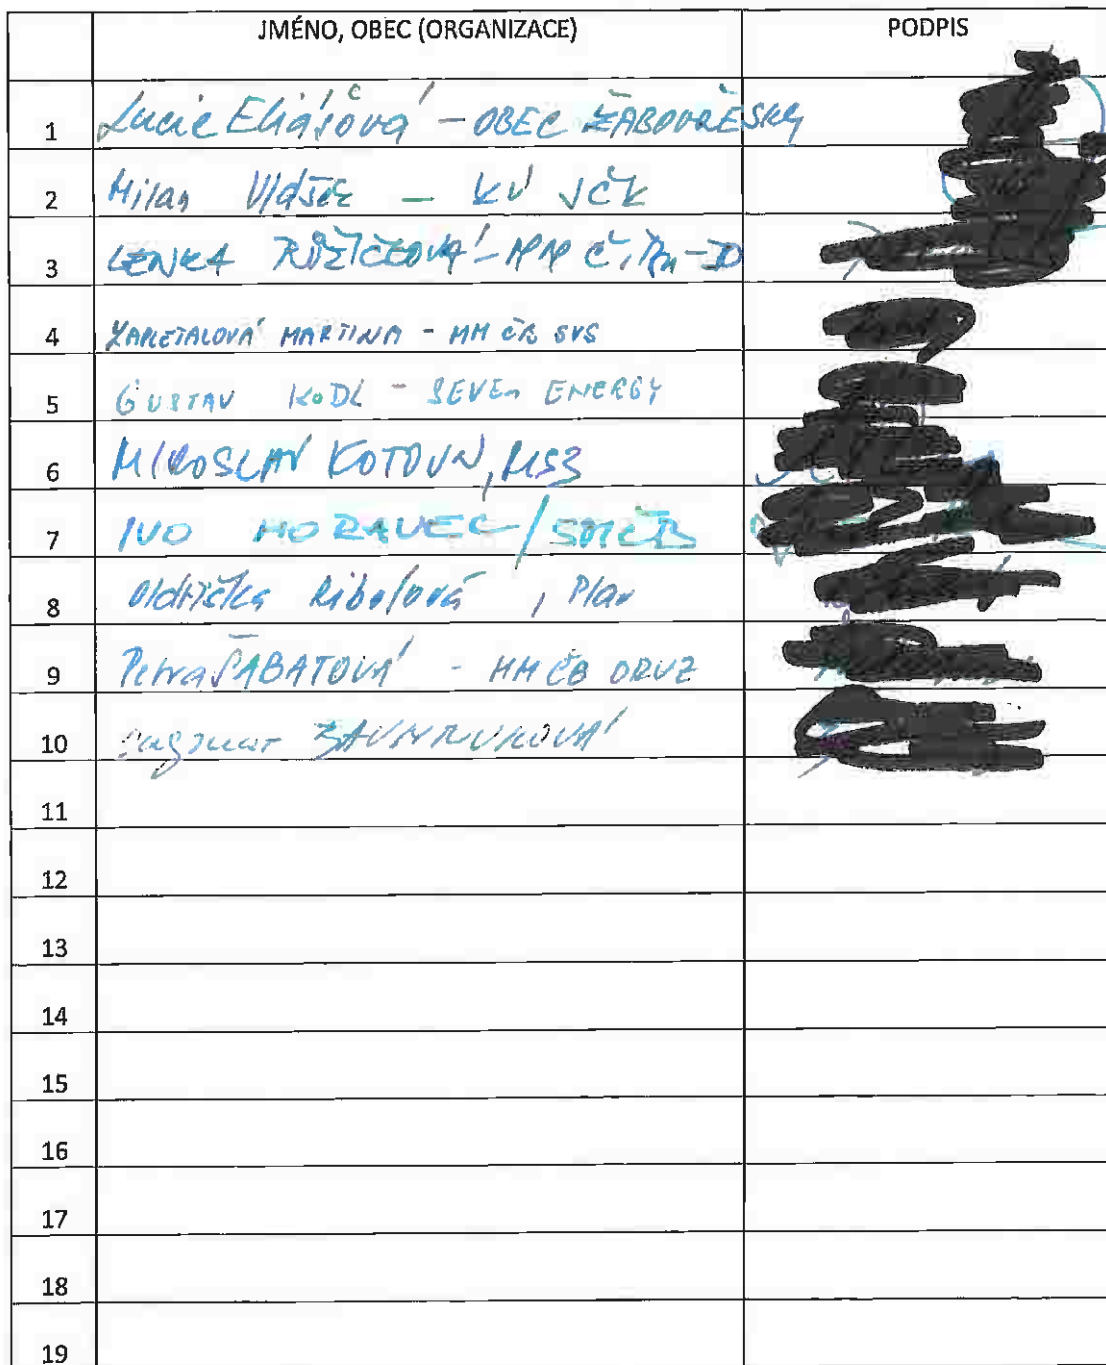 JMÉNO, OBEC (ORGANIZACE) PODPIS
1 Lucie Eliášová - OBEC ŽABOVŘESKY
2 Milan - KÚ JČK
3 LENKA RŮŽIČKOVÁ -
4 MARTINA - MM ČB SVS
5 GUSTAV KODL - SEVEn ENERGY
6 MIROSLAV KOTOUN,
7 IVO MORAVEC /
8 Oldřiška , Plav
9 Petra ŠABATOVÁ - MM ČB ORVZ
10 Dagmar
11
12
13
14
15
16
17
18
19